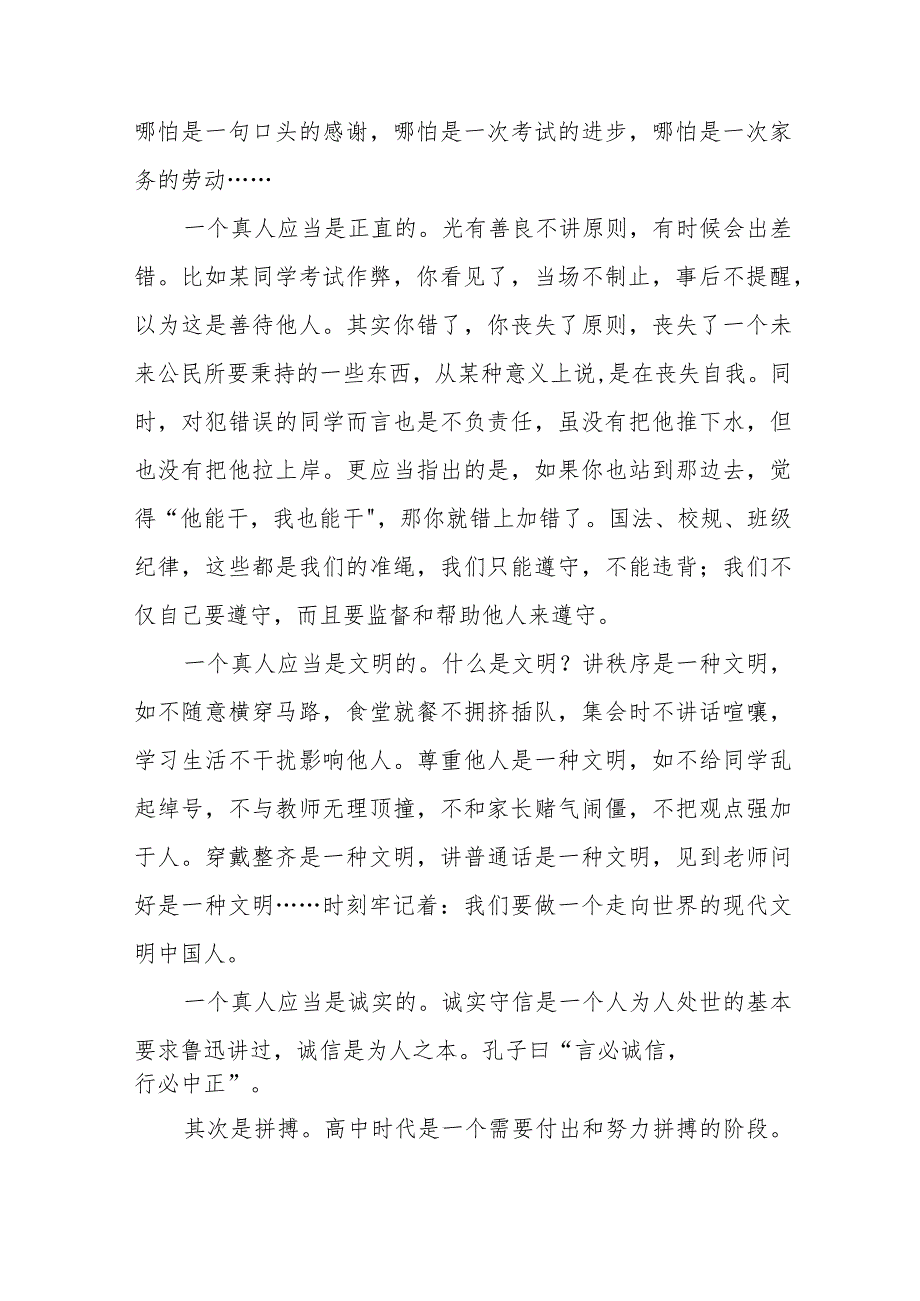 哪怕是一句口头的感谢，哪怕是一次考试的进步，哪怕是一次家
务的劳动……
一个真人应当是正直的。光有善良不讲原则，有时候会出差
错。比如某同学考试作弊，你看见了，当场不制止，事后不提醒，
以为这是善待他人。其实你错了，你丧失了原则，丧失了一个未
来公民所要秉持的一些东西，从某种意义上说,是在丧失自我。同
时，对犯错误的同学而言也是不负责任，虽没有把他推下水，但
也没有把他拉上岸。更应当指出的是，如果你也站到那边去，觉
得“他能干，我也能干"，那你就错上加错了。国法、校规、班级
纪律，这些都是我们的准绳，我们只能遵守，不能违背；我们不
仅自己要遵守，而且要监督和帮助他人来遵守。
一个真人应当是文明的。什么是文明？讲秩序是一种文明，
如不随意横穿马路，食堂就餐不拥挤插队，集会时不讲话喧嚷，
学习生活不干扰影响他人。尊重他人是一种文明，如不给同学乱
起绰号，不与教师无理顶撞，不和家长赌气闹僵，不把观点强加
于人。穿戴整齐是一种文明，讲普通话是一种文明，见到老师问
好是一种文明……时刻牢记着：我们要做一个走向世界的现代文
明中国人。
一个真人应当是诚实的。诚实守信是一个人为人处世的基本
要求鲁迅讲过，诚信是为人之本。孔子曰“言必诚信，
行必中正”。
其次是拼搏。高中时代是一个需要付出和努力拼搏的阶段。